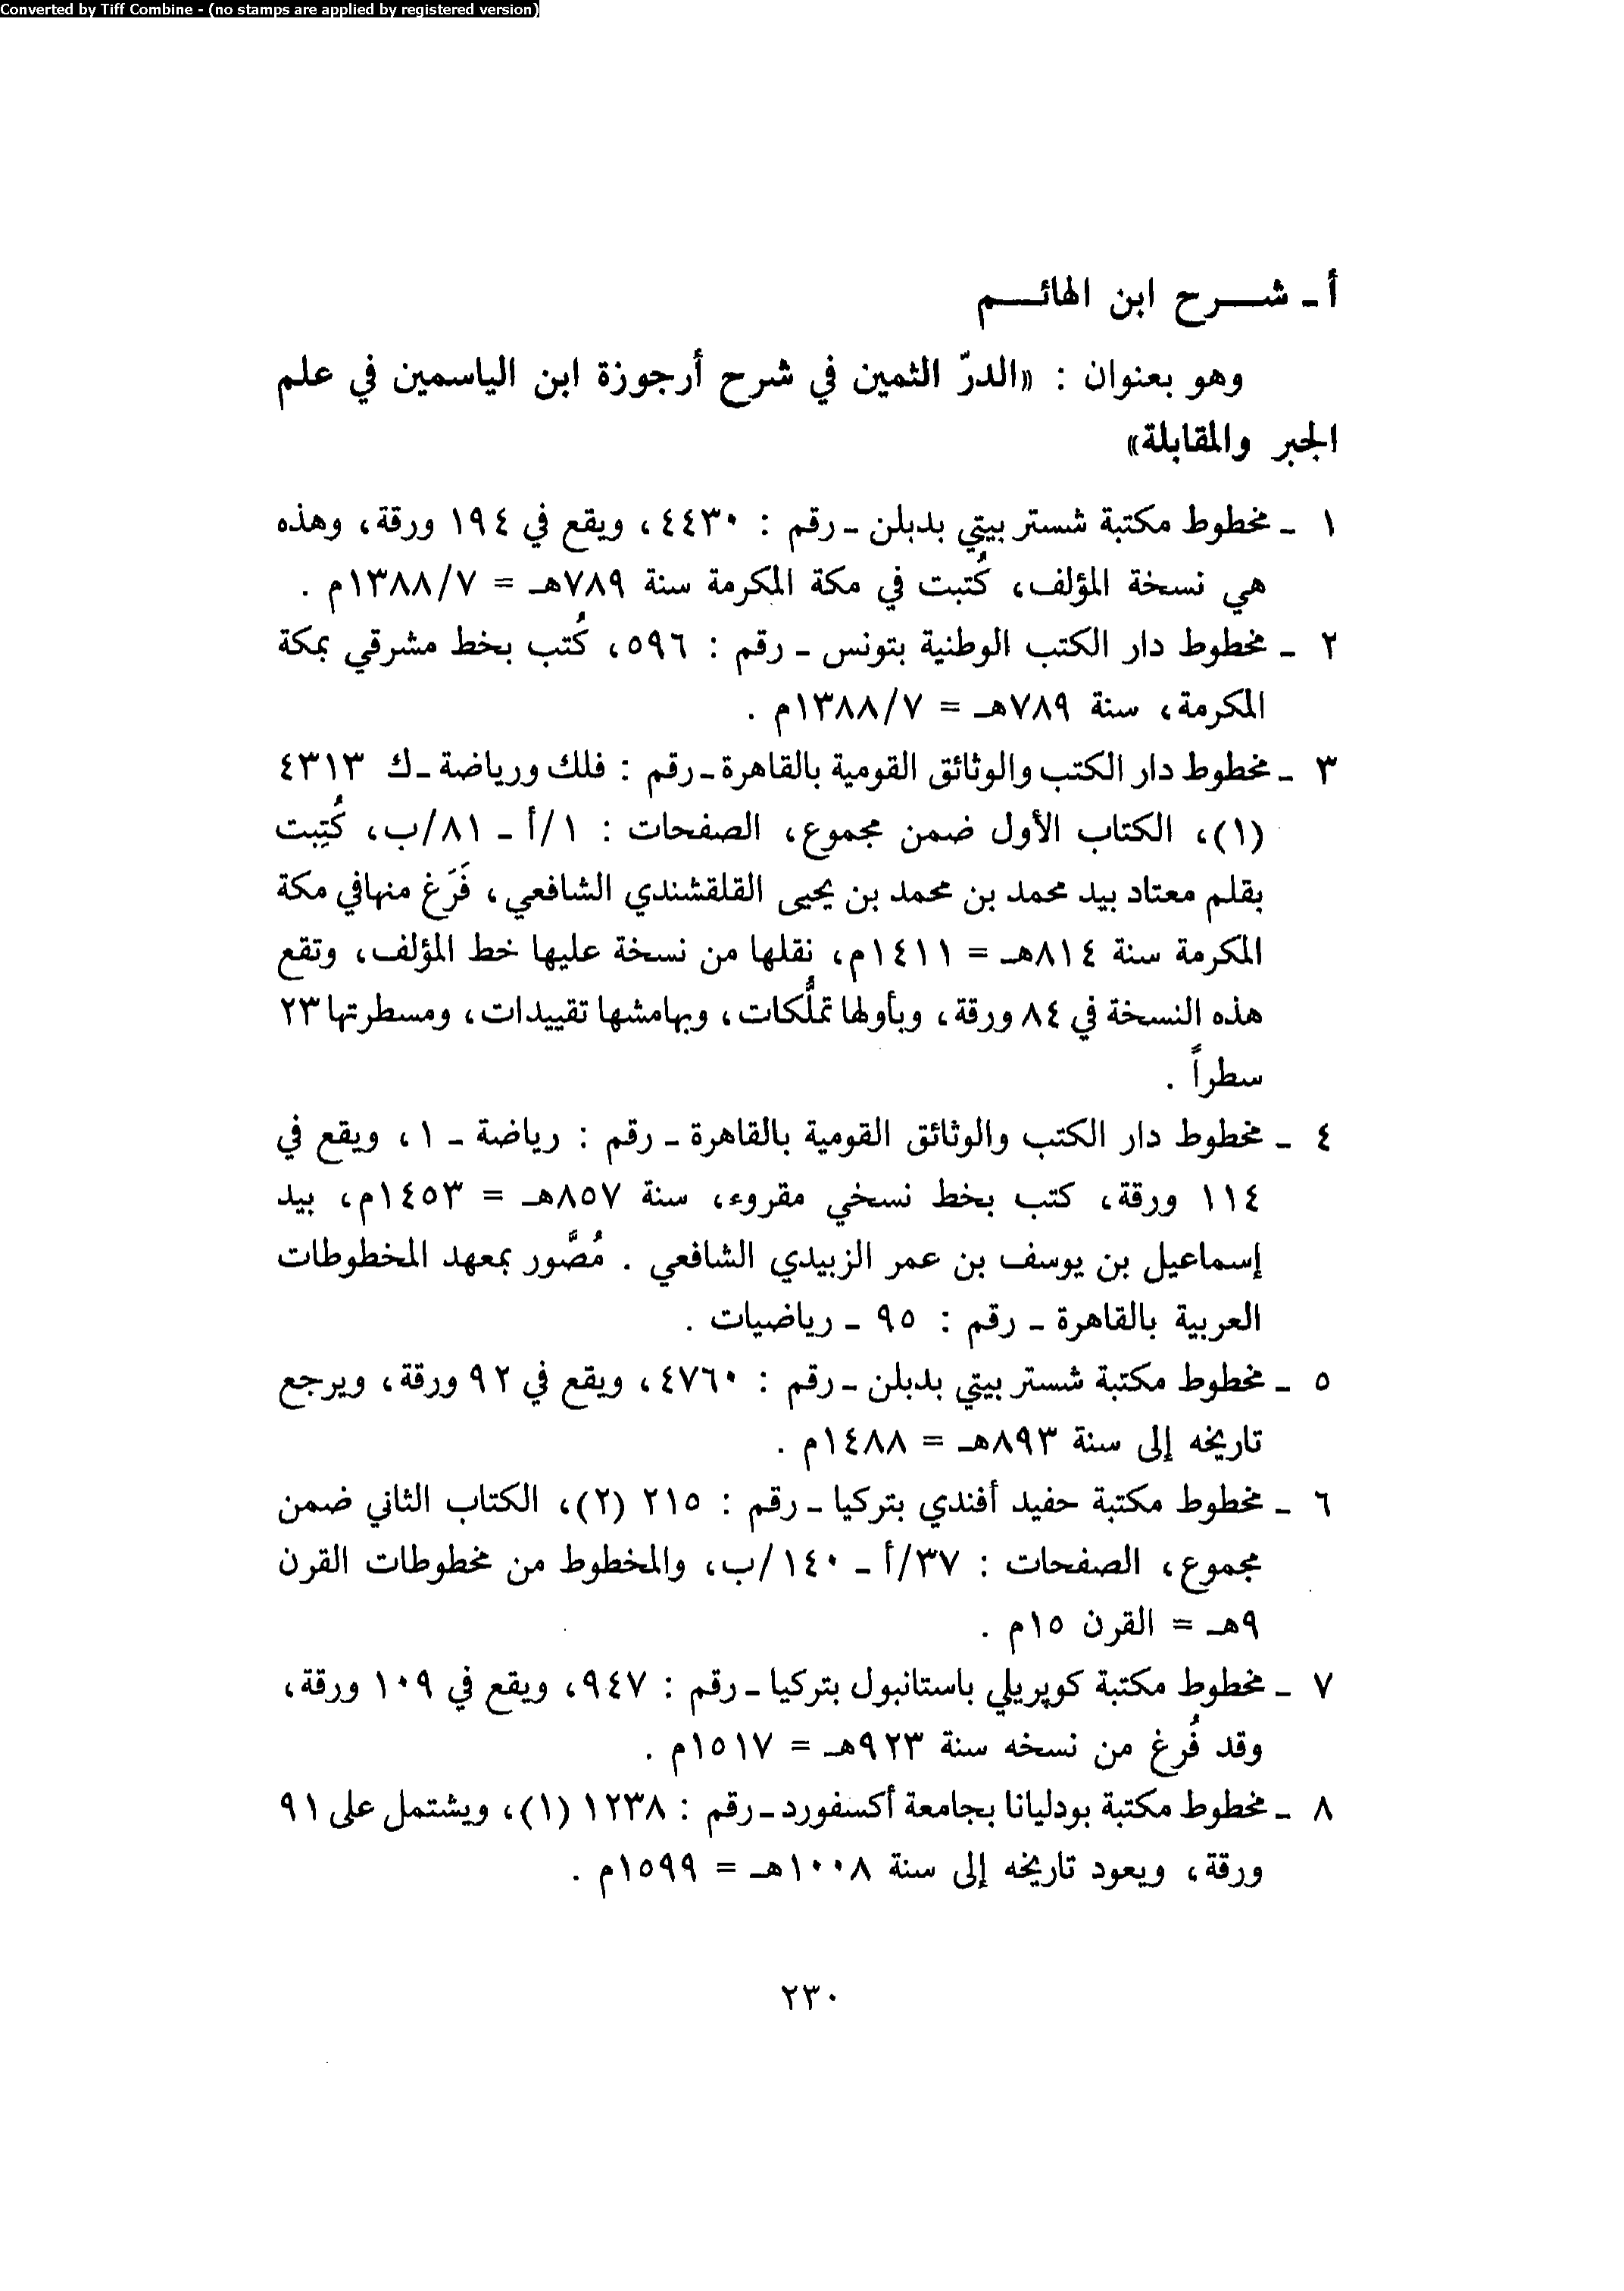 Converted by Tiff Combine - (no stamps are applied by registered version)
أ ـ شـــرح ابن الهائـــم
وهو بعنوان : «الدرّ الثمين في شرح أرجوزة ابن الياسمين في علم
الجبر والمقابلة»
١ ـ مخطوط مكتبة شستر بيتي بدبلن ـ رقم : ٤٤٣٠، ويقع في ١٩٤ ورقة، وهذه
هي نسخة المؤلف، كُتبت في مكة المكرمة سنة ٧٨٩هـ = ١٣٨٨/٧م .
٢ ـ مخطوط دار الكتب الوطنية بتونس ـ رقم : ٥٩٦، كُتب بخط مشرقي بمكة
المكرمة، سنة ٧٨٩هـ = ١٣٨٨/٧م .
٣ ـ مخطوط دار الكتب والوثائق القومية بالقاهرة ـ رقم : فلك ورياضة ـ ك ٤٣١٣
(١)، الكتاب الأول ضمن مجموع، الصفحات : ١/أ ـ ٨١/ب، كُتِبت
بقلم معتاد بيد محمد بن محمد بن يحيى القلقشندي الشافعي، فَرَغ منهافي مكة
المكرمة سنة ٨١٤هـ = ١٤١١م، نقلها من نسخة عليها خط المؤلف، وتقع
هذه النسخة في ٨٤ ورقة، وبأولها تملُّكات، وبهامشها تقييدات، ومسطرتها ٢٣
سطراً .
٤ ـ مخطوط دار الكتب والوثائق القومية بالقاهرة ـ رقم : رياضة ـ ١، ويقع في
١١٤ ورقة، كتب بخط نسخي مقروء، سنة ٨٥٧هـ = ١٤٥٣م، بيد
إسماعيل بن يوسف بن عمر الزبيدي الشافعي . مُصَّور بمعهد المخطوطات
العربية بالقاهرة ـ رقم : ٩٥ ـ رياضيات .
٥ ـ مخطوط مكتبة شستر بيتي بدبلن ـ رقم : ٤٧٦٠، ويقع في ٩٢ ورقة، ويرجع
تاريخه إلى سنة ٨٩٣هـ = ١٤٨٨م .
٦ ـ مخطوط مكتبة حفيد أفندي بتركيا ـ رقم : ٢١٥ (٢)، الكتاب الثاني ضمن
مجموع، الصفحات : ٣٧/أ ـ ١٤٠/ب، والمخطوط من مخطوطات القرن
٩هـ = القرن ١٥م .
٧ ـ مخطوط مكتبة كوپريلي باستانبول بتركيا ـ رقم : ٩٤٧، ويقع في ١٠٩ ورقة،
وقد فُرغ من نسخه سنة ٩٢٣هـ = ١٥١٧م .
٨ ـ مخطوط مكتبة بودليانا بجامعة أكسفورد ـ رقم : ١٢٣٨ (١)، ويشتمل على ٩١
ورقة، ويعود تاريخه إلى سنة ١٠٠٨هـ = ١٥٩٩م .
٢٣٠